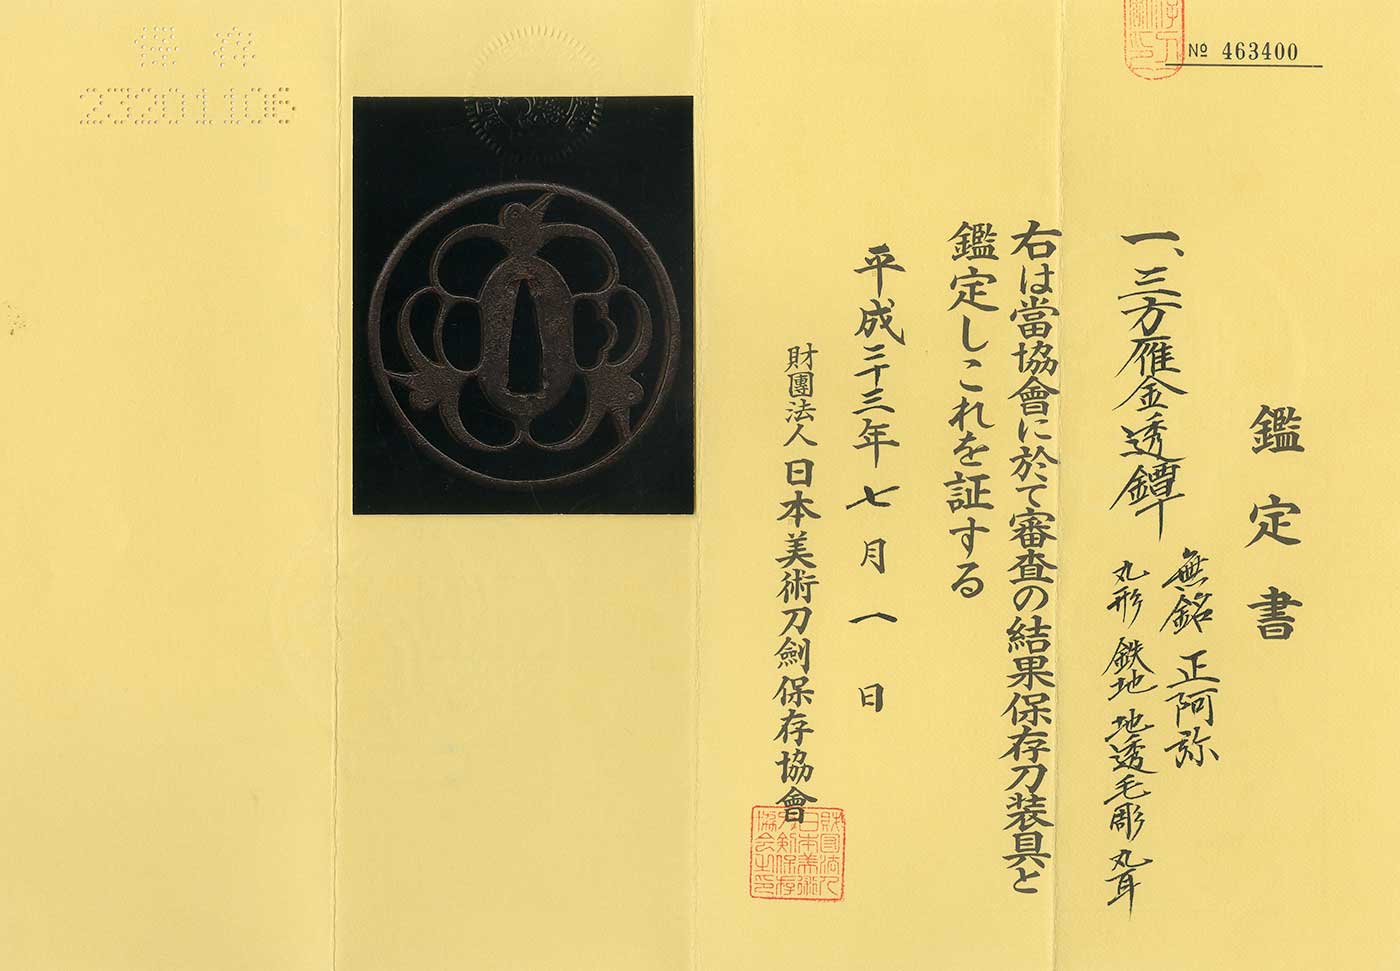 鑑定書
№ 463400
一、三方雁金透鐔
無銘 正阿弥
丸形 鉄地 地透毛彫 丸耳
右は當協會に於て審査の結果保存刀装具と
鑑定しこれを証する
平成二十三年七月一日
財團法人 日本美術刀劍保存協會
財団法人日本美術刀剣保存協会之印
保存
23201106